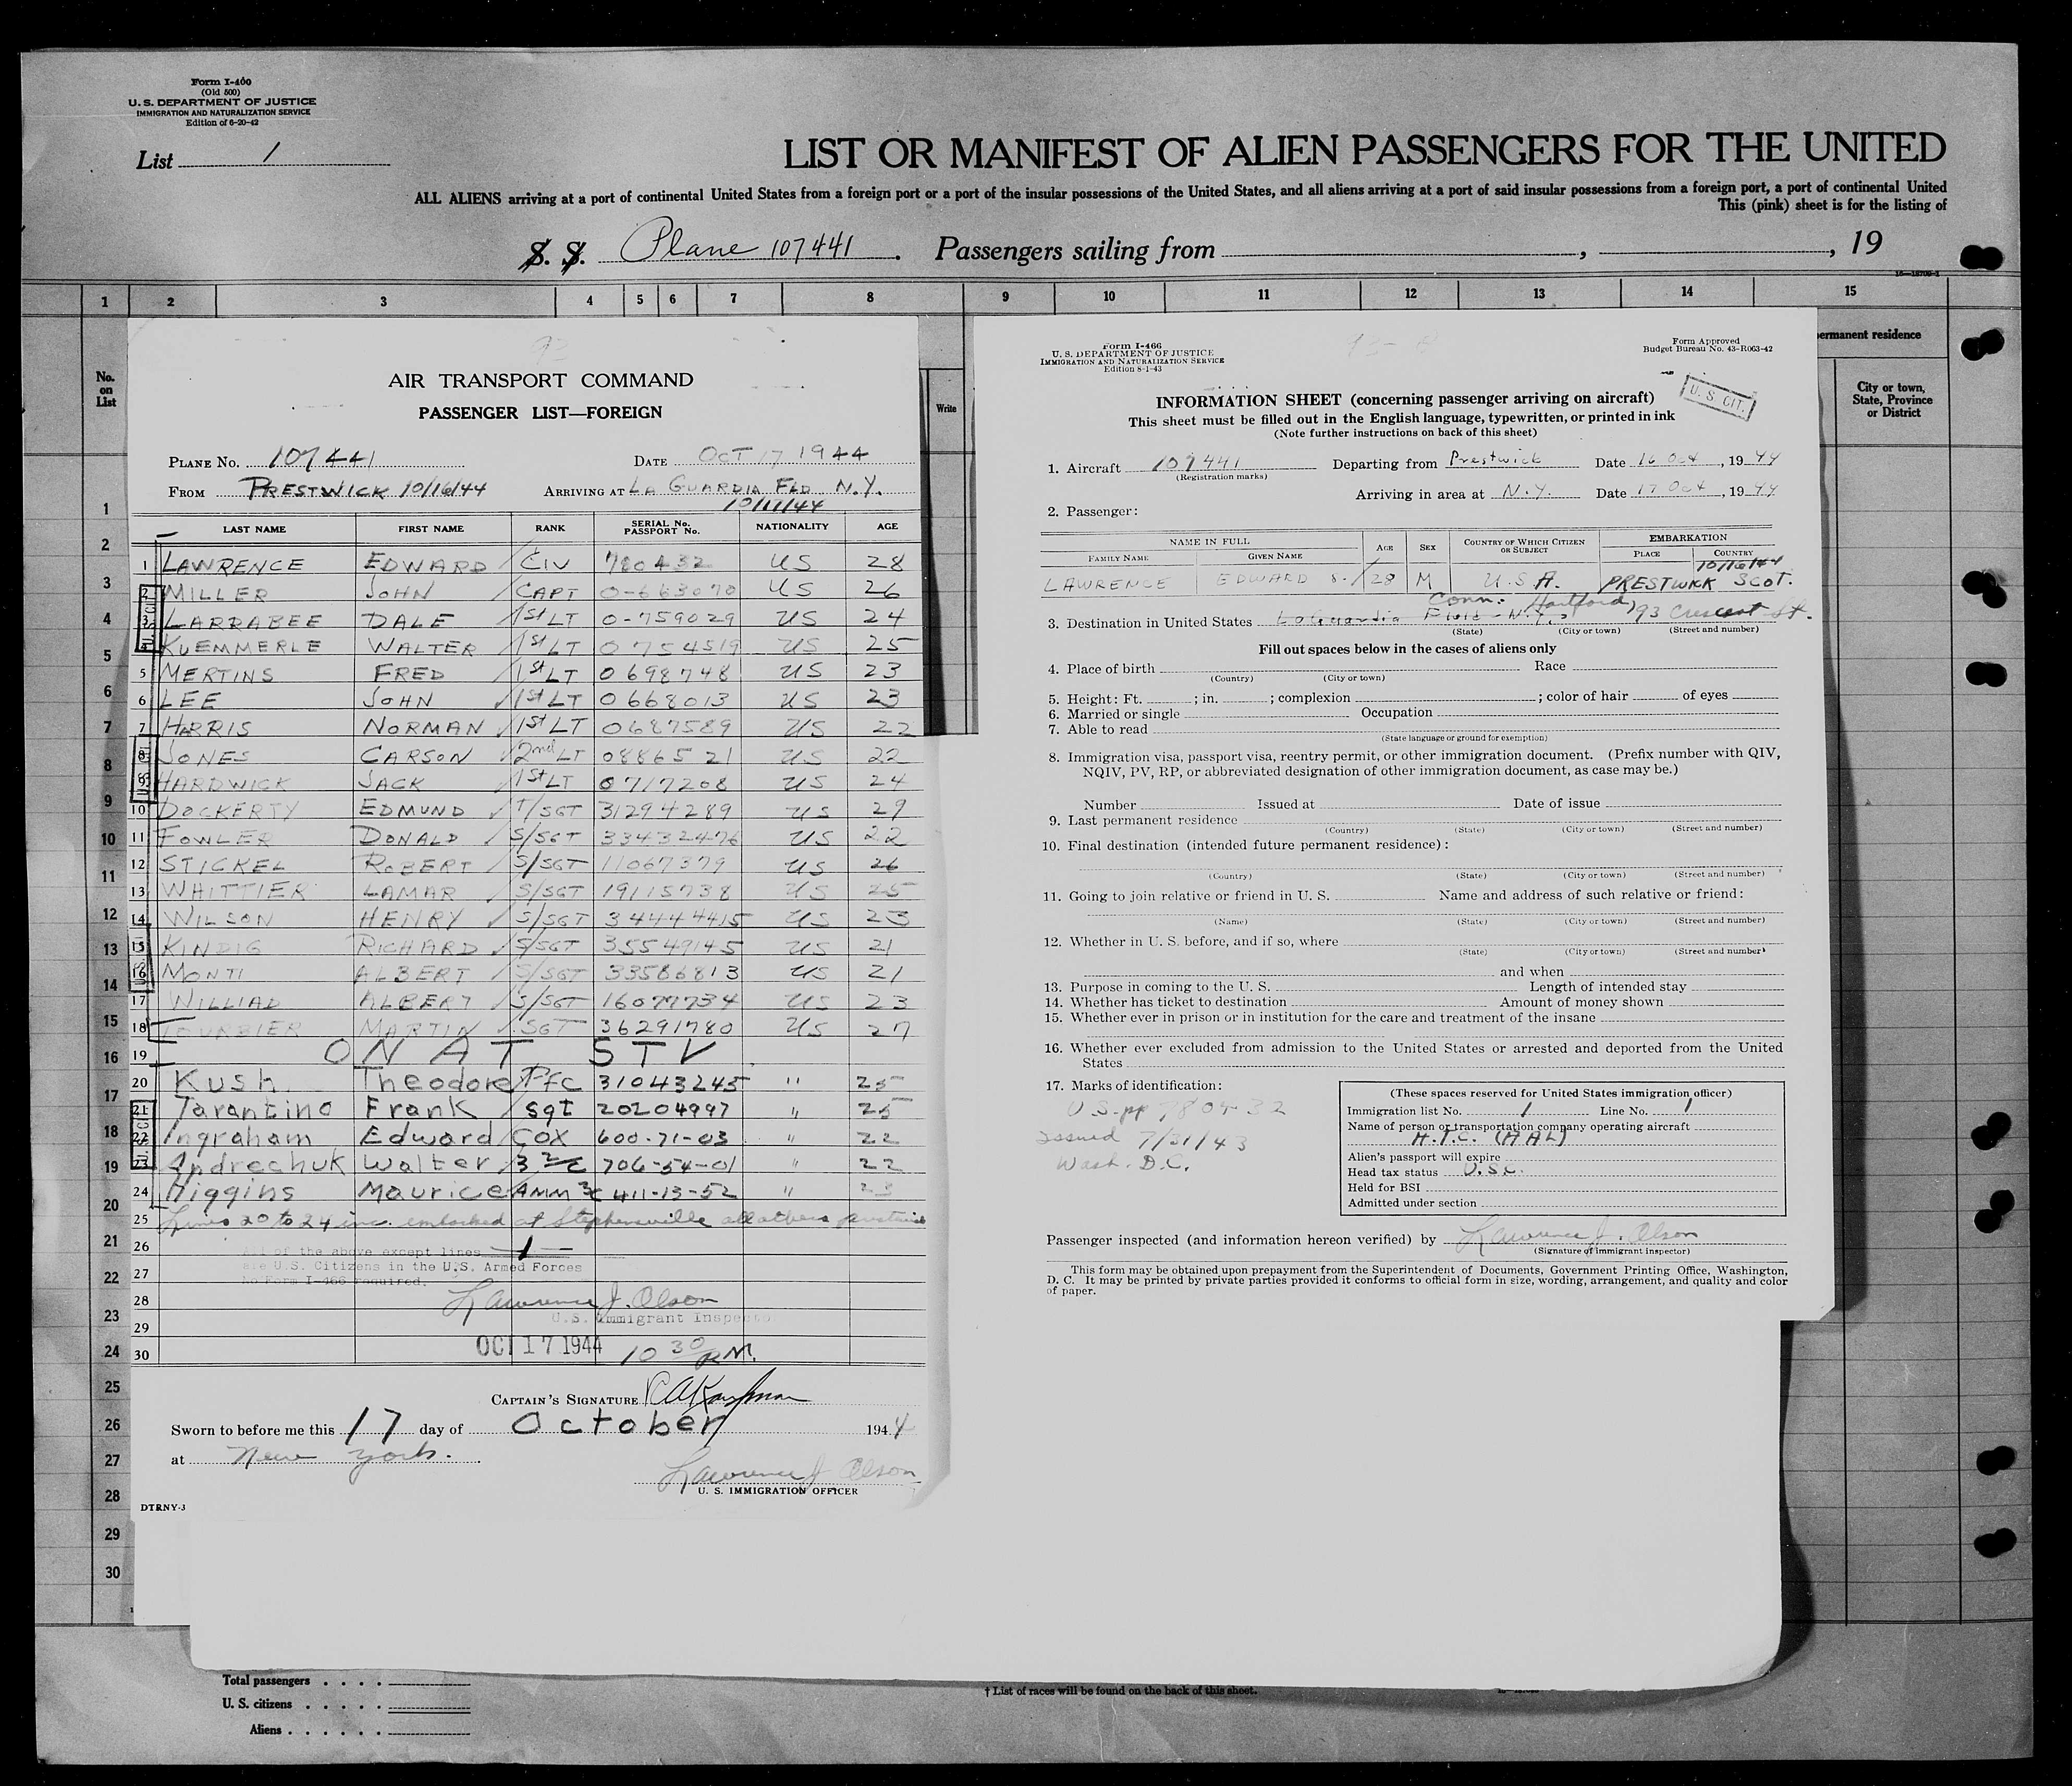 Form I-400
(Old 500)
U. S. DEPARTMENT OF JUSTICE
IMMIGRATION AND NATURALIZATION SERVICE
Edition of 6-20-42
List 1
LIST OR MANIFEST OF ALIEN PASSENGERS FOR THE UNITED
ALL ALIENS arriving at a port of continental United States from a foreign port or a port of the insular possessions of the United States, and all aliens arriving at a port of said insular possessions from a foreign port, a port of continental United
This (pink) sheet is for the listing of
S. S. Plane 107441 . Passengers sailing from , , 19
1 2 3 4 5 6 7 8 9 10 11 12 13 14 15
No. on List
Write
permanent residence
City or town, State, Province or District
AIR TRANSPORT COMMAND
PASSENGER LIST—FOREIGN
PLANE No. 107441 DATE OCT 17 1944
FROM PRESTWICK 10/16/44 ARRIVING AT LA GUARDIA FLD N.Y.
10/17/44
LAST NAME FIRST NAME RANK SERIAL No. PASSPORT No. NATIONALITY AGE
1 LAWRENCE EDWARD CIV 780432 US 28
2 MILLER JOHN CAPT O-663070 US 26
3 LARRABEE DALE 1st LT O-759029 US 24
4 KUEMMERLE WALTER 1st LT 0754519 US 25
5 MERTINS FRED 1st LT 0698748 US 23
6 LEE JOHN 1st LT 0668013 US 23
7 HARRIS NORMAN 1st LT 0687589 US 22
8 JONES CARSON 2nd LT 0886521 US 22
9 HARDWICK JACK 1st LT 0717208 US 24
10 DOCKERTY EDMUND T/SGT 31294289 US 29
11 FOWLER DONALD S/SGT 33432476 US 22
12 STICKEL ROBERT S/SGT 11067379 US 26
13 WHITTIER LAMAR S/SGT 19115738 US 25
14 WILSON HENRY S/SGT 34444415 US 23
15 KINDIG RICHARD S/SGT 35549145 US 21
16 MONTI ALBERT S/SGT 33586813 US 21
17 WILLIAD ALBERT S/SGT 16077734 US 23
18 MARTIN SGT 36291780 US 27
19 ON AT STV
20 Kush Theodore Pfc 31043245 " 25
21 Tarantino Frank Sgt 20204997 " 25
22 Ingraham Edward COX 600-71-03 " 22
23 Andrechuk Walter 706-54-01 " 22
24 Higgins Maurice AMM 3/c 411-13-52 " 23
25 Lines 20 to 24 inc. embarked at Stephensville all others
26 All of the above except lines 1
are U.S. Citizens in the U.S. Armed Forces
27 No Form I-466 required.
28 Lawrence J. Olson
U.S. Immigrant Inspector
29
30 OCT 17 1944 10 30 P.M.
CAPTAIN'S SIGNATURE
Sworn to before me this 17 day of October 1944
at New York.
Lawrence J Olson
U. S. IMMIGRATION OFFICER
DTRNY-3
Form I-466
U. S. DEPARTMENT OF JUSTICE
IMMIGRATION AND NATURALIZATION SERVICE
Edition 8-1-43
Form Approved
Budget Bureau No. 43-R063-42
U. S. CIT.
INFORMATION SHEET (concerning passenger arriving on aircraft)
This sheet must be filled out in the English language, typewritten, or printed in ink
(Note further instructions on back of this sheet)
1. Aircraft 107441 Departing from Prestwick Date 16 Oct, 1944
(Registration marks)
Arriving in area at N.Y. Date 17 Oct, 1944
2. Passenger:
NAME IN FULL AGE SEX COUNTRY OF WHICH CITIZEN OR SUBJECT EMBARKATION
FAMILY NAME GIVEN NAME PLACE COUNTRY
10/16/44
LAWRENCE EDWARD S. 28 M U.S.A. PRESTWICK SCOT.
Conn. Hartford, 93 Crescent St.
3. Destination in United States LaGuardia Field - N.Y.
(State) (City or town) (Street and number)
Fill out spaces below in the cases of aliens only
4. Place of birth Race
(Country) (City or town)
5. Height: Ft. ; in. ; complexion ; color of hair of eyes
6. Married or single Occupation
7. Able to read
(State language or ground for exemption)
8. Immigration visa, passport visa, reentry permit, or other immigration document. (Prefix number with QIV,
NQIV, PV, RP, or abbreviated designation of other immigration document, as case may be.)
Number Issued at Date of issue
9. Last permanent residence
(Country) (State) (City or town) (Street and number)
10. Final destination (intended future permanent residence):
(Country) (State) (City or town) (Street and number)
11. Going to join relative or friend in U. S. Name and address of such relative or friend:
(Name) (State) (City or town) (Street and number)
12. Whether in U. S. before, and if so, where
(State) (City or town) (Street and number)
and when
13. Purpose in coming to the U. S. Length of intended stay
14. Whether has ticket to destination Amount of money shown
15. Whether ever in prison or in institution for the care and treatment of the insane
16. Whether ever excluded from admission to the United States or arrested and deported from the United
States
17. Marks of identification:
U S. pp 780432
Issued 7/31/43
Wash. D.C.
(These spaces reserved for United States immigration officer)
Immigration list No. 1 Line No. 1
Name of person or transportation company operating aircraft
A.T.C. (AAL)
Alien's passport will expire
Head tax status U.S.C.
Held for BSI
Admitted under section
Passenger inspected (and information hereon verified) by Lawrence J. Olson
(Signature of immigrant inspector)
This form may be obtained upon prepayment from the Superintendent of Documents, Government Printing Office, Washington,
D. C. It may be printed by private parties provided it conforms to official form in size, wording, arrangement, and quality and color
of paper.
1
2
3
4
5
6
7
8
9
10
11
12
13
14
15
16
17
18
19
20
21
22
23
24
25
26
27
28
29
30
Total passengers . . . .
U. S. citizens . . . . .
Aliens . . . . . .
† List of races will be found on the back of this sheet.